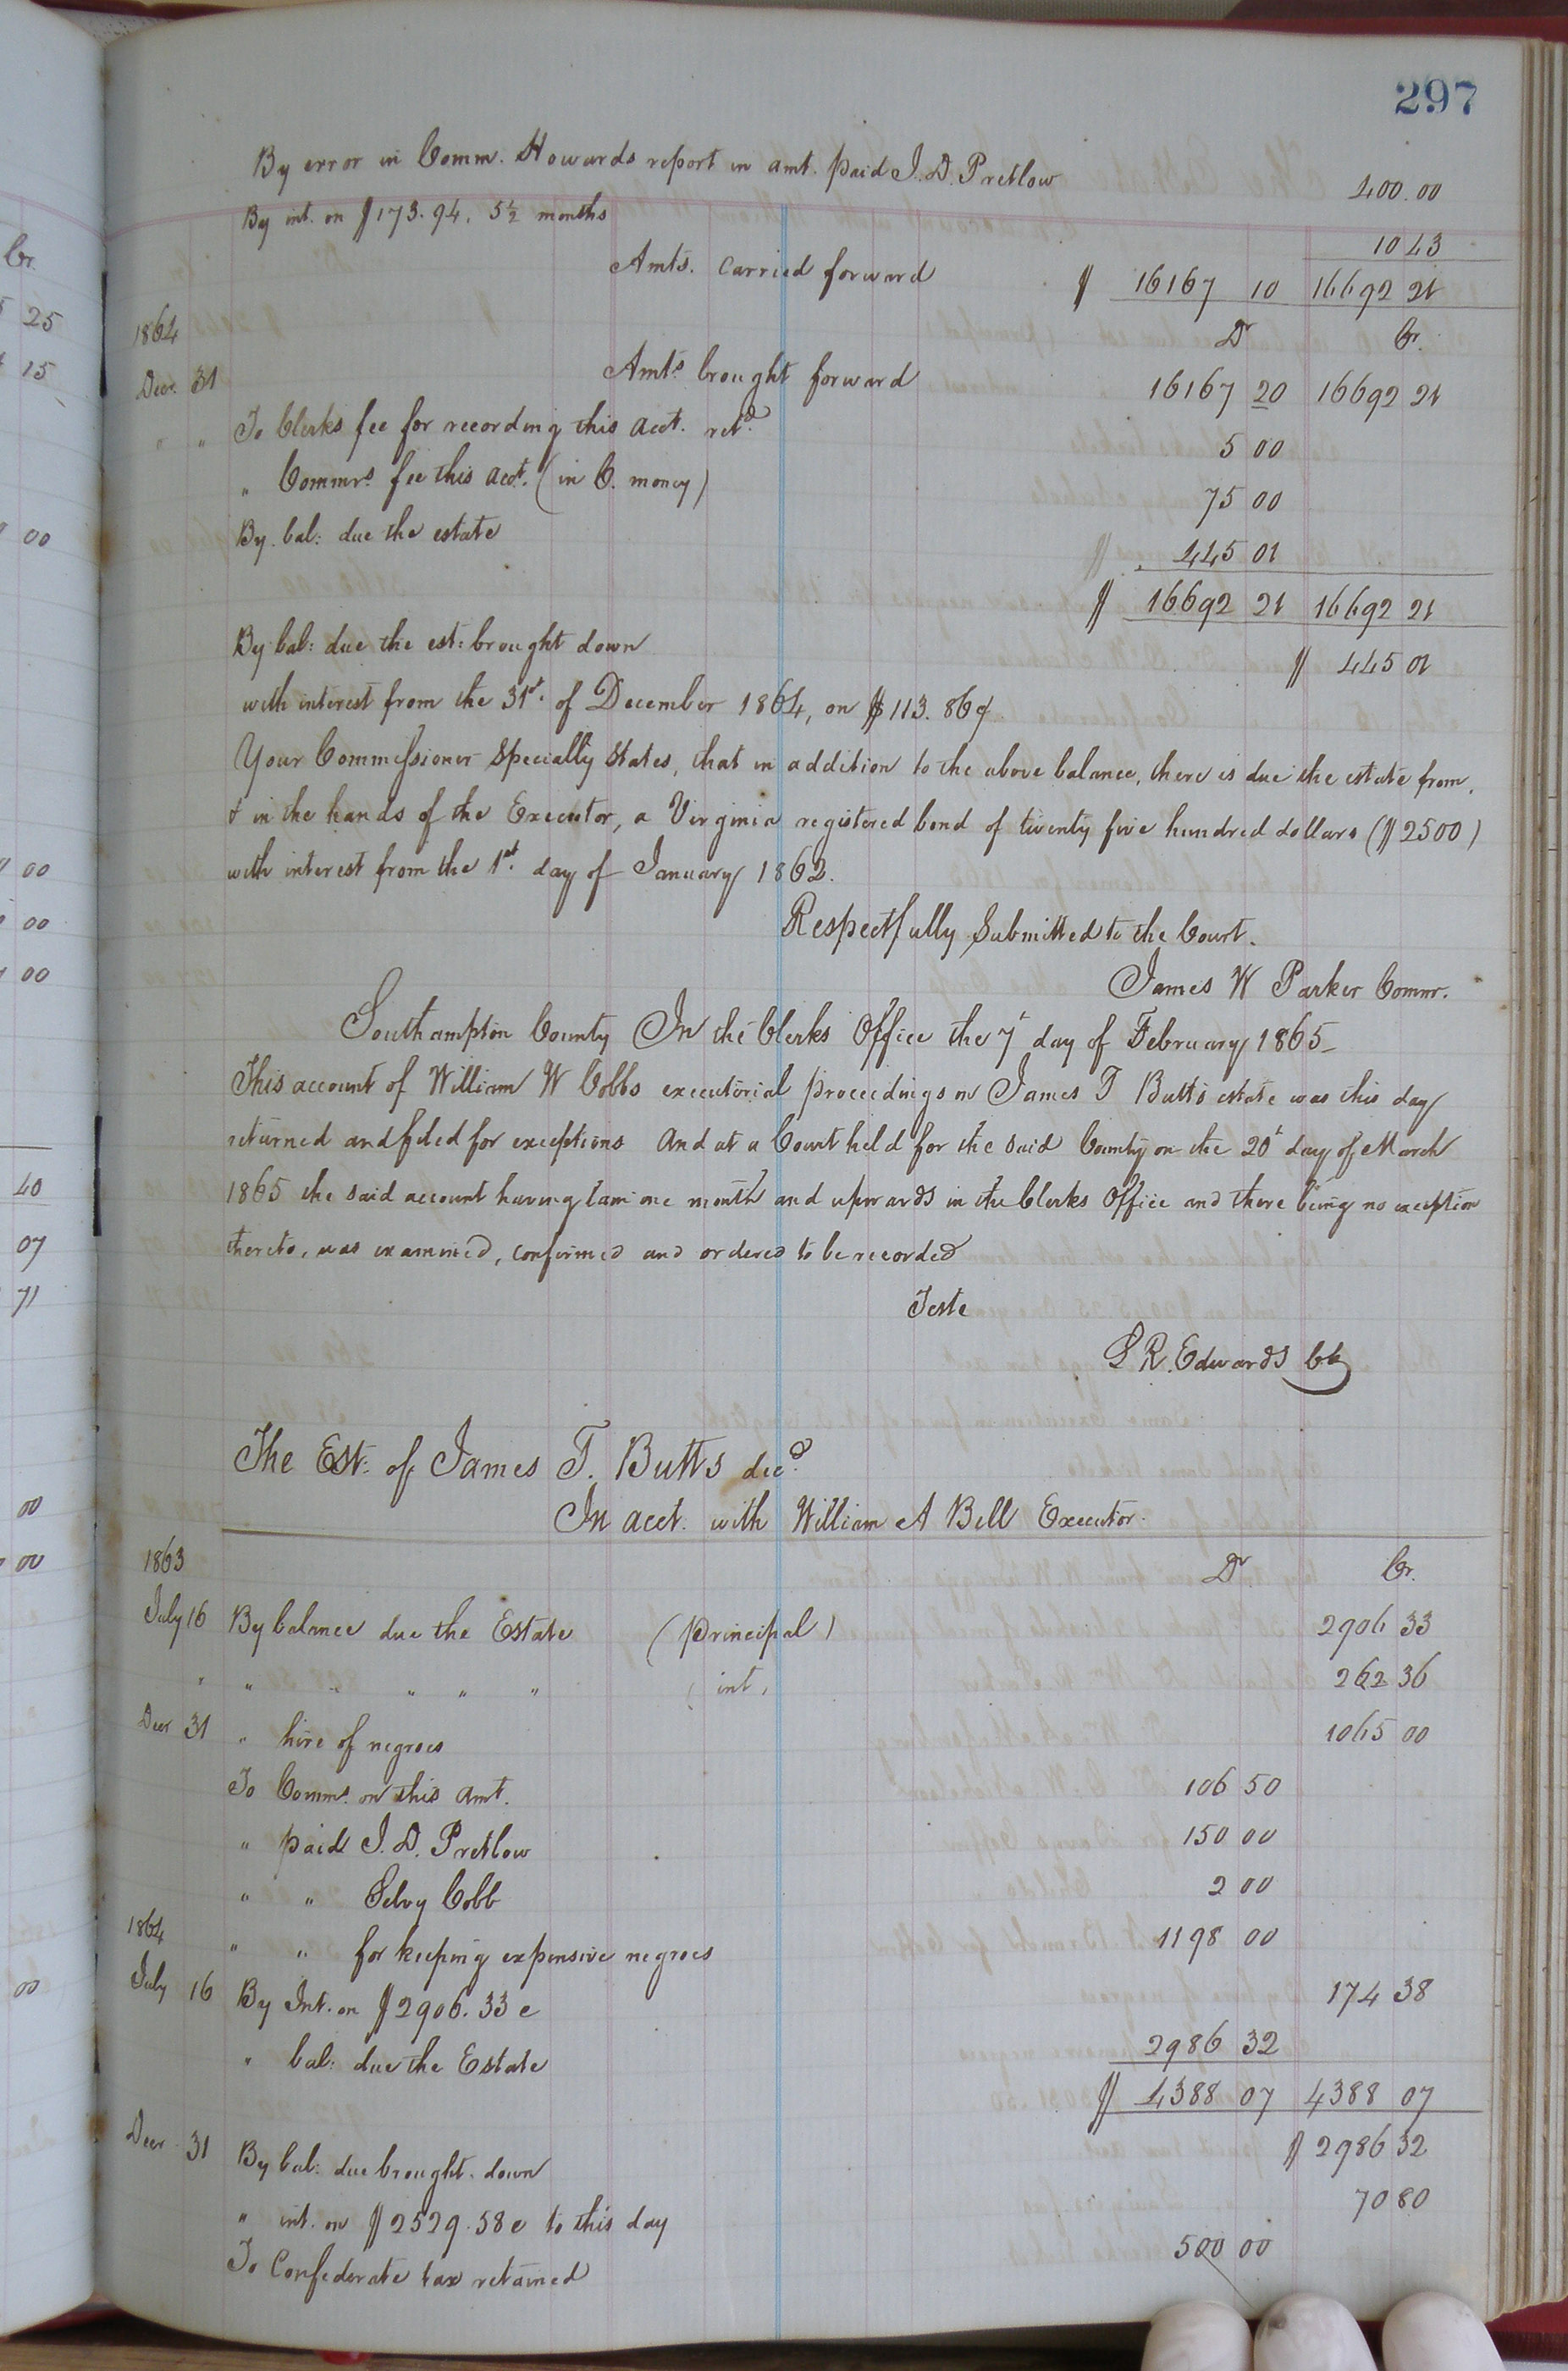 297
By error in Comm. Howards report in amt. paid J. D. Pretlow 400.00
By int. on $173.94, 5½ months 10 43
Amts. carried forward $ 16167 10 16692 21
Dr Cr.
1864
Decr. 31 Amts. brought forward 16167 20 16692 21
" " To Clerks fee for recording this acct. retd. 5 00
" Commrs. fee this acct. (in C. money) 75 00
By bal: due the estate $ 445 01
$ 16692 21 16692 21
By bal: due the est: brought down $ 445 01
with interest from the 31st. of December 1864, on $113.86¢
Your Commissioner Specially States, that in addition to the above balance, there is due the estate from,
& in the hands of the Executor, a Virginia registered bond of twenty five hundred dollars ($2500)
with interest from the 1st. day of January 1862.
Respectfully Submitted to the Court.
James W Parker Commr.
Southampton County In the Clerks Office the 7t day of February 1865–
This account of William W Cobbs executorial proceedings on James T Butts estate was this day
returned and filed for exceptions And at a Court held for the said County on the 20t day of March
1865 the said account having lain one month and upwards in the Clerks Office and there being no exception
thereto, was examined, confirmed and ordered to be recorded
Teste
L R. Edwards Clk
The Est: of James T. Butts decd.
In acct. with William A Bell Executor.
1863 Dr Cr.
July 16 By balance due the Estate (principal) 2906 33
" " " " " " ( int, 262 36
Decr 31 " hire of negroes 1065 00
To Comms. on this amt. 106 50
" paid J. D. Pretlow 150 00
" " Selvy Cobb 2 00
1864
" " for keeping expensive negroes 1198 00
July 16 By Int. on $2906.33 c 174 38
" bal: due the Estate 2986 32
$ 4388 07 4388 07
Decr 31 By bal: due brought down $ 2986 32
" int. on $2529.58 c to this day 70 80
To Confederate tax retained 500 00
Cr.
25
15
00
00
00
00
40
07
71
00
00
00